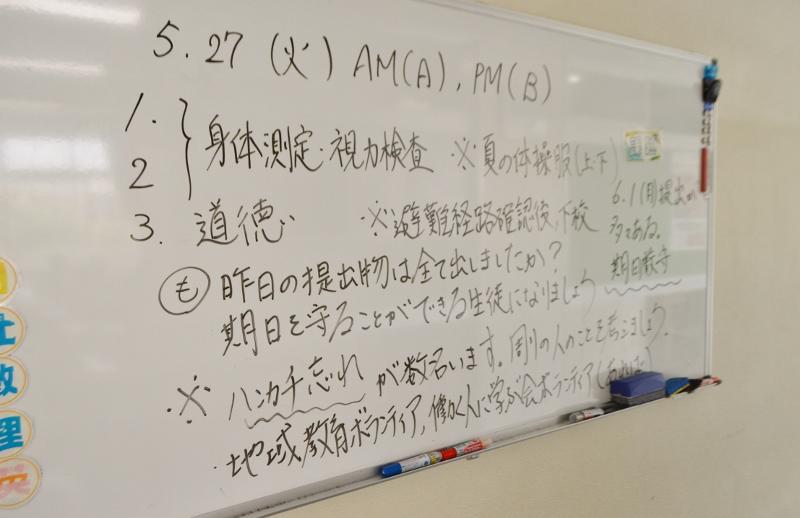 5.27 (火) AM(A), PM(B)
1.
2 } 身体測定・視力検査 ※夏の体操服(上・下)
3. 道徳 ※避難経路確認後、下校
6.1(月)提出が
多々ある。
期日厳守
も 昨日の提出物は全て出しましたか?
期日を守ることができる生徒になりましょう
※ ハンカチ忘れが数名います。周りの人のことを考えましょう。
・地域教育ボランティア、働く人に学ぶ会ボランティア(あれば)
社
数
理
英